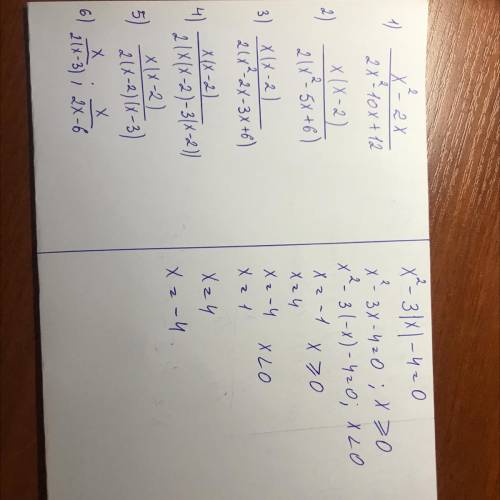 1) x² - 2x / 2x² - 10x + 12
2) x(x - 2) / 2(x² - 5x + 6)
3) x(x - 2) / 2(x² - 2x - 3x + 6)
4) x(x - 2) / 2(x(x - 2) - 3(x - 2))
5) x(x - 2) / 2(x - 2)(x - 3)
6) x / 2(x - 3) ; x / 2x - 6
x² - 3|x| - 4 = 0
x² - 3x - 4 = 0 ; x ⩾ 0
x² - 3(-x) - 4 = 0 ; x < 0
x = -1 x ⩾ 0
x = 4
x = -4 x < 0
x = 1
x = 4
x = -4